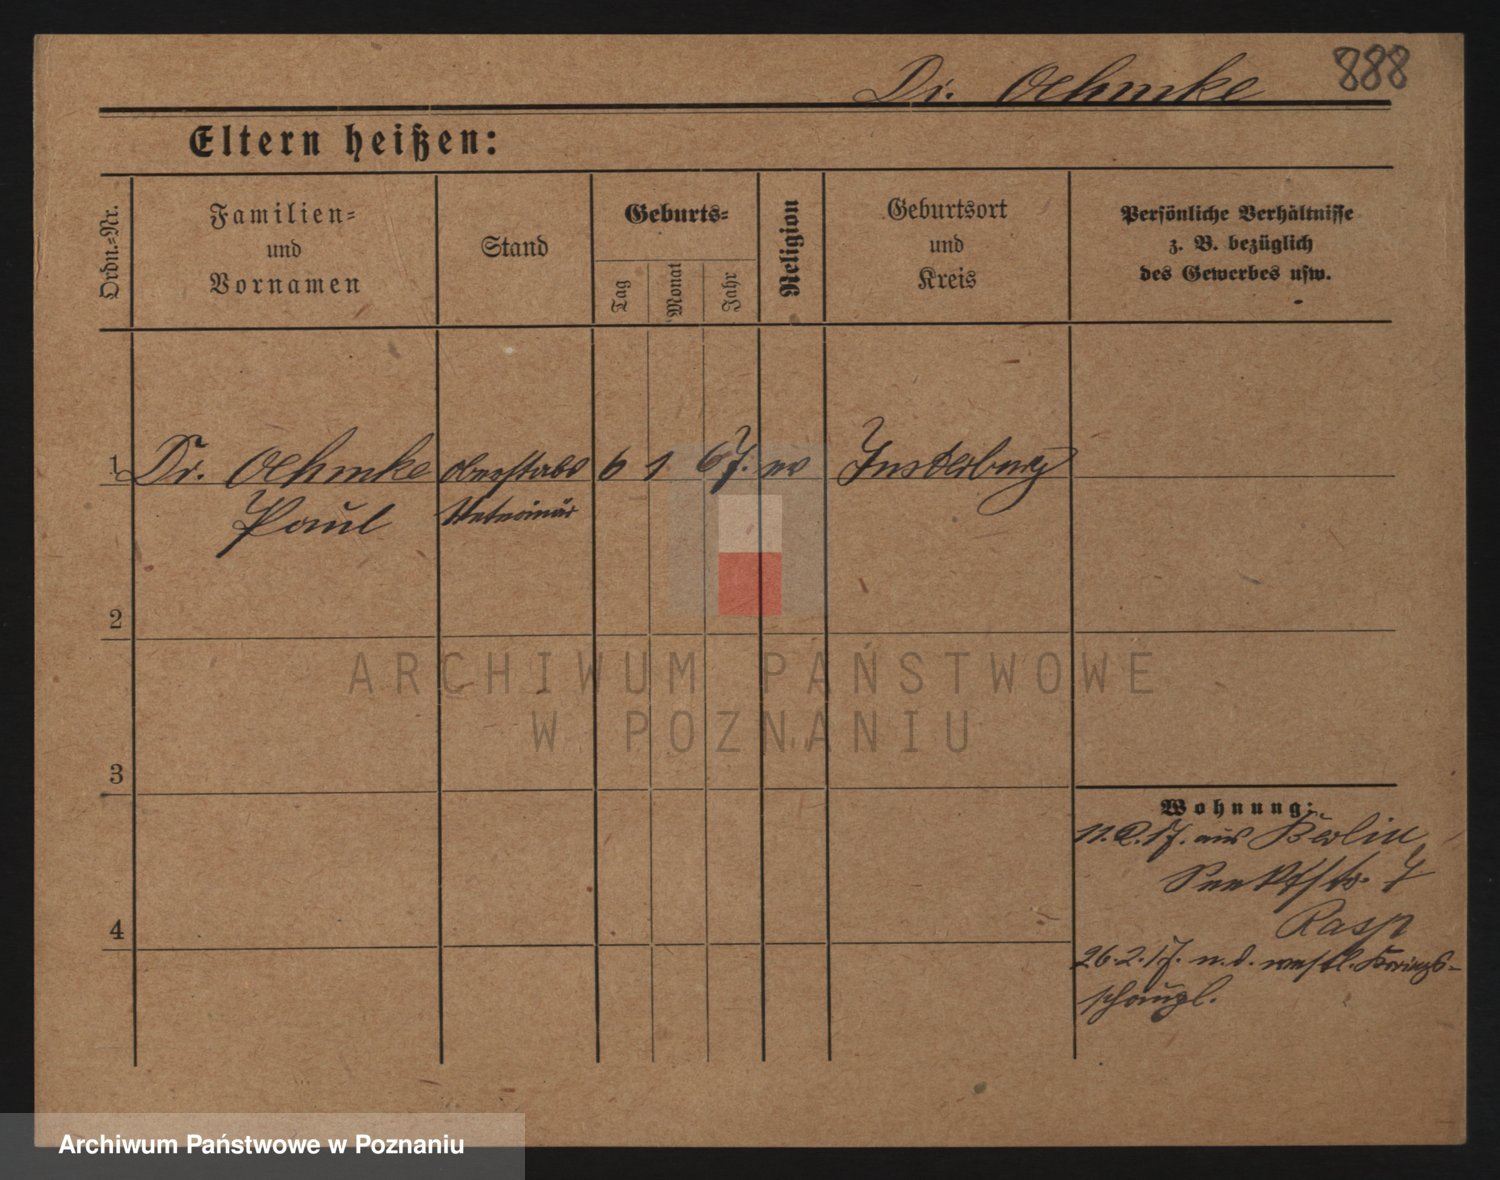 888
Dr. Oehmke
Eltern heißen:
Ordn.=Nr.
Familien=
und
Vornamen
Stand
Geburts=
Tag
Monat
Jahr
Religion
Geburtsort
und
Kreis
Persönliche Verhältnisse
z. B. bezüglich
des Gewerbes usw.
1 Dr. Oehmke Oberstabs 6 1 67. ev Insterburg
Paul Veterinär
2
3
4
Wohnung:
11.2.17. aus Berlin
7
Rasp
26.2.17. n. d. westl. Kriegs-
schaupl.
ARCHIWUM PAŃSTWOWE
W POZNANIU
Archiwum Państwowe w Poznaniu